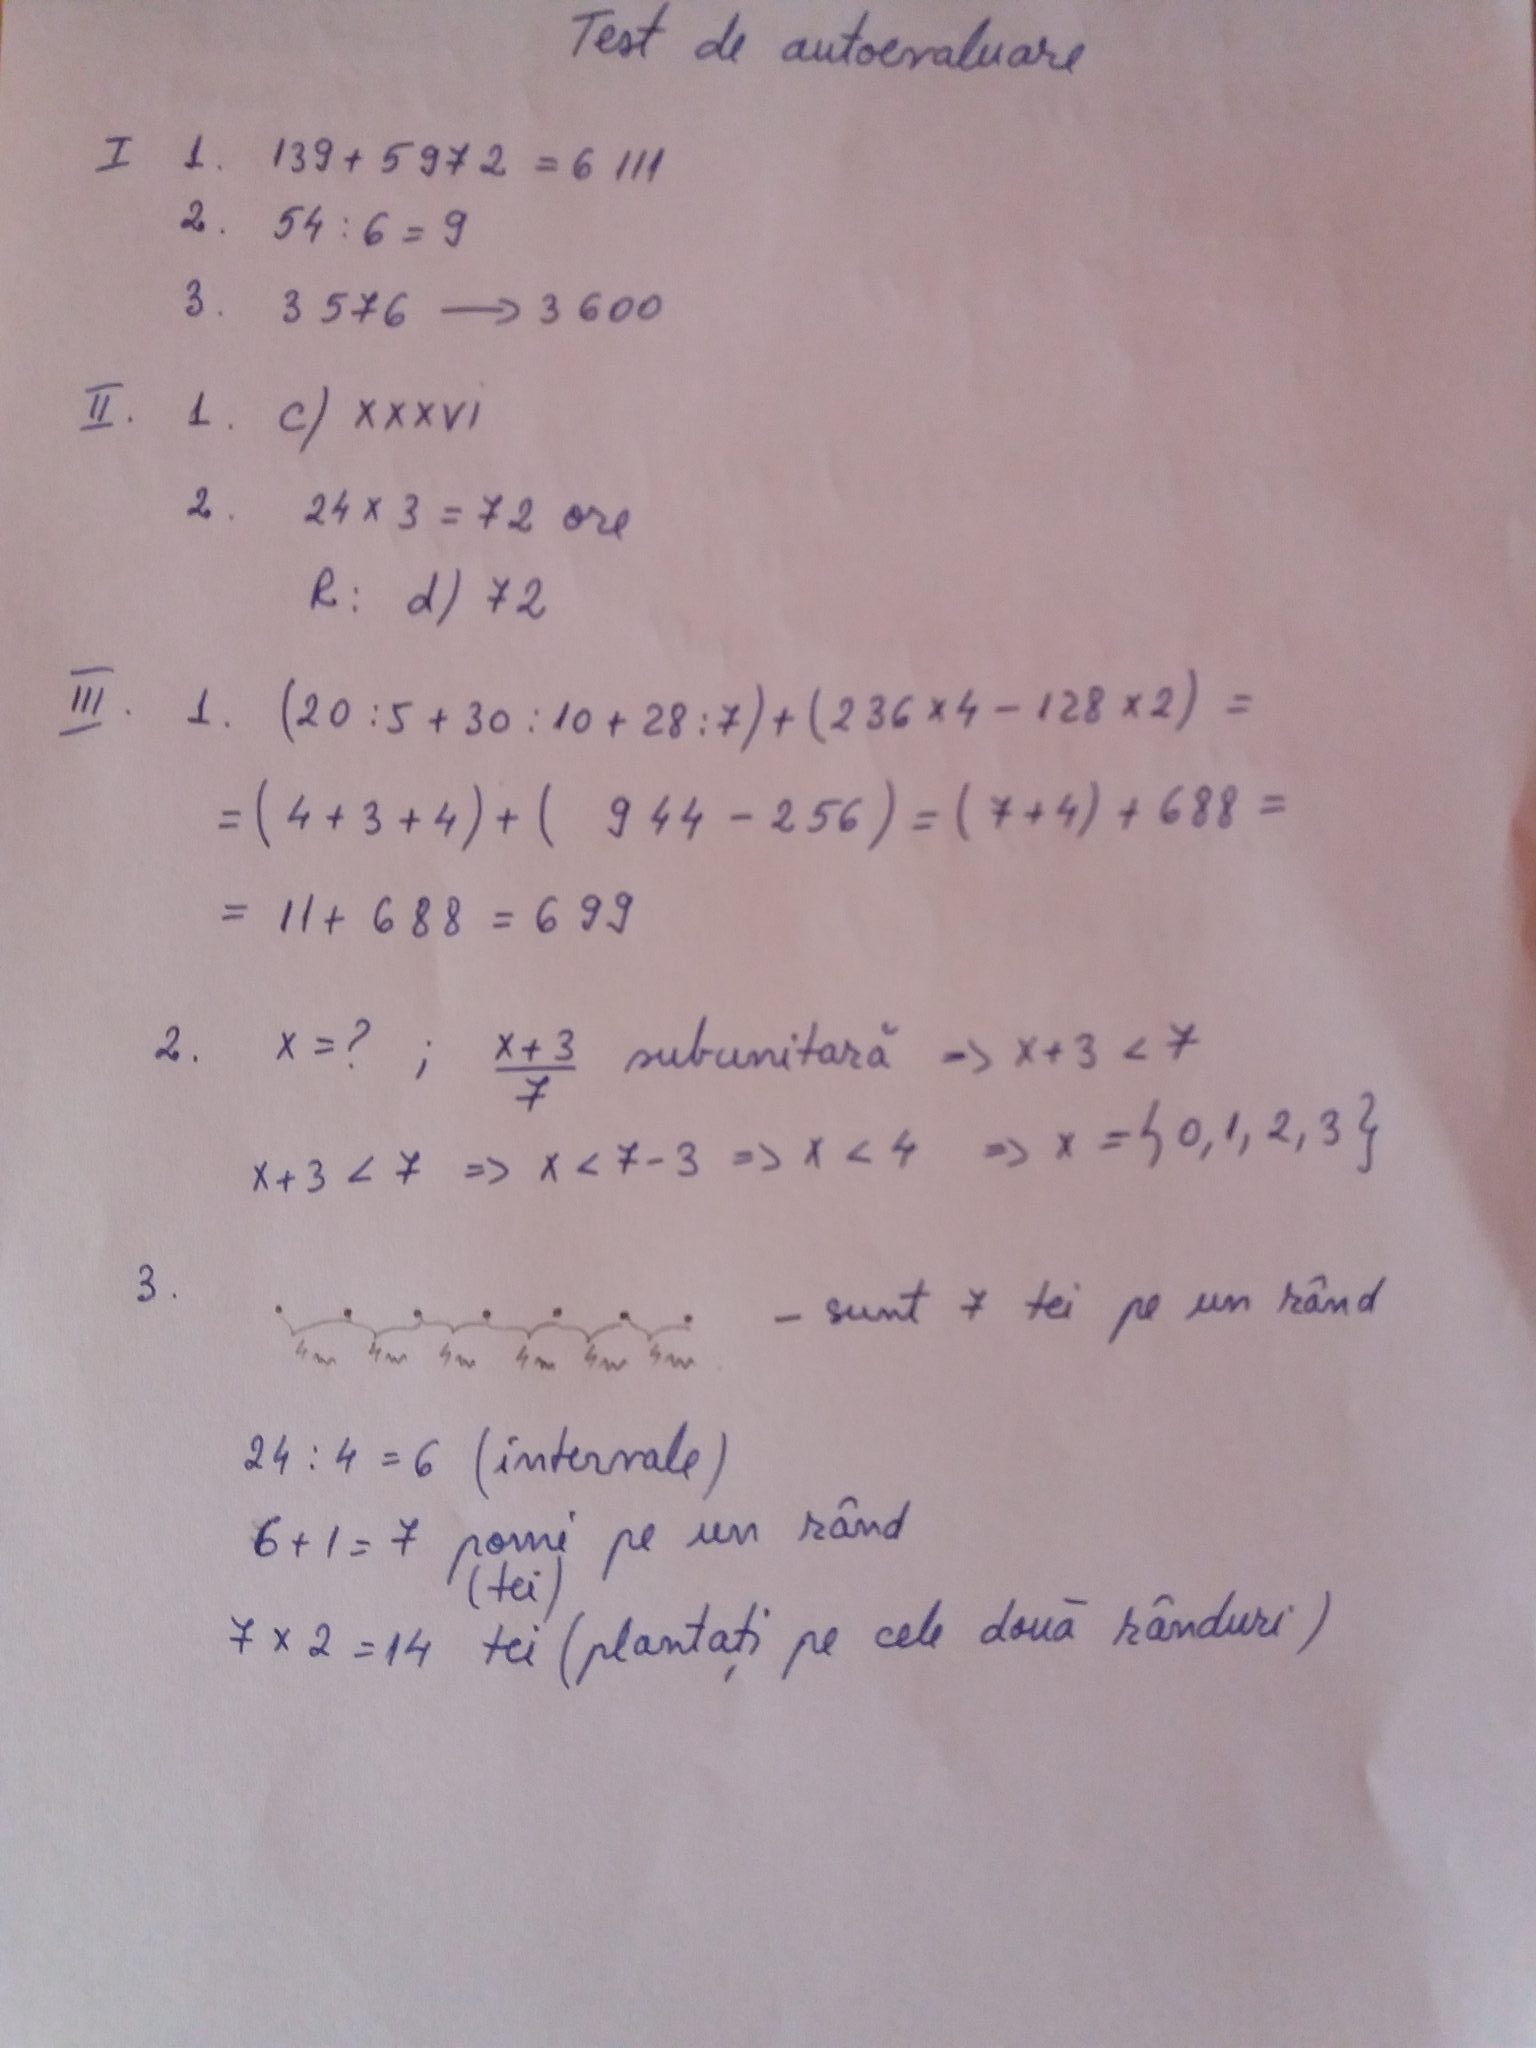 Test de autoevaluare
I 1. 139 + 5972 = 6111
2. 54 : 6 = 9
3. 3576 → 3600
II. 1. c) XXXVI
2. 24 x 3 = 72 ore
R: d) 72
III. 1. (20 : 5 + 30 : 10 + 28 : 7) + (236 x 4 - 128 x 2) =
= (4 + 3 + 4) + ( 944 - 256) = (7 + 4) + 688 =
= 11 + 688 = 699
2. x = ? ; x+3/7 subunitară => x + 3 < 7
x + 3 < 7 => x < 7 - 3 => x < 4 => x = {0, 1, 2, 3}
3. - sunt 7 tei pe un rând
4m 4m 4m 4m 4m 4m
24 : 4 = 6 (intervale)
6 + 1 = 7 pomi pe un rând
(tei)
7 x 2 = 14 tei (plantați pe cele două rânduri)